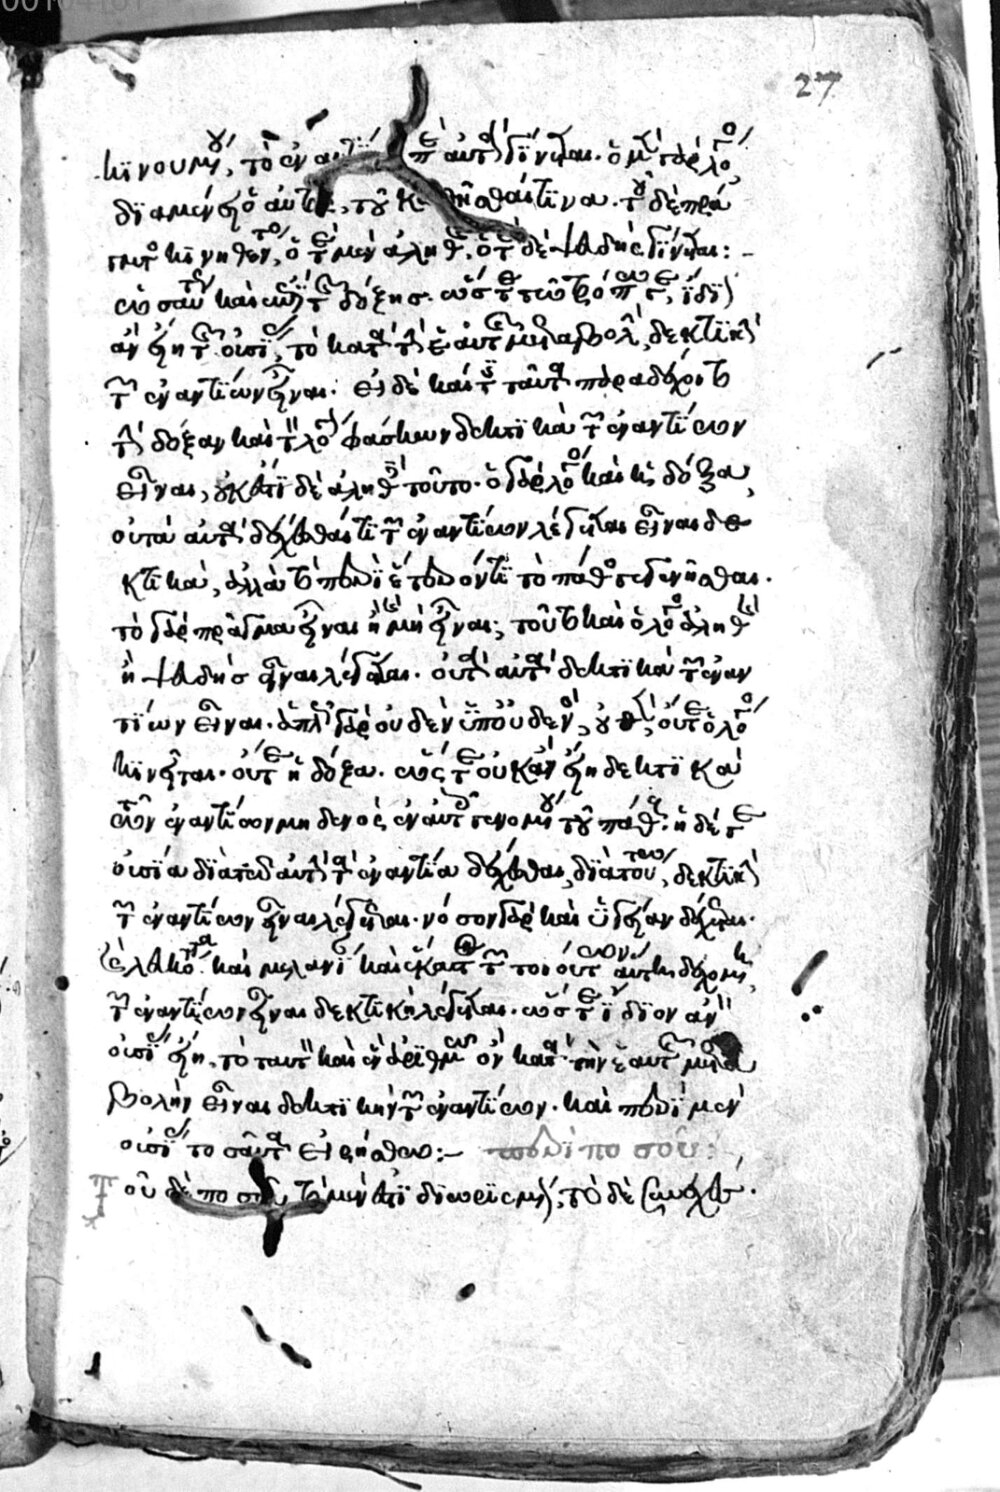 27
κινουμένου, τὸ ἐναντίον περὶ αὐτὰ γίνεται. ὁ μὲν γὰρ λόγος
διαμένει ὁ αὐτός, τοῦ κεκινῆσθαί τινα. τοῦ δὲ πρά
γματος κινηθέντος, ὁτὲ μὲν ἀληθής, ὁτὲ δὲ ψευδὴς γίνεται:-
ὡσαύτως καὶ ἐπὶ τῆς δόξης. ὥστε τῷ τρόπῳ γε ἴδιον
ἂν εἴη τῆς οὐσίας, τὸ κατὰ τὴν ἑαυτῆς μεταβολὴν, δεκτικὴν
τῶν ἐναντίων εἶναι. εἰ δέ καί τις ταῦτα παραδέχοιτο
τὴν δόξαν καὶ τὸν λόγον φάσκων δεκτικὰ τῶν ἐναντίων
εἶναι, οὐκ ἔστι δὲ ἀληθὲς τοῦτο. ὁ γὰρ λόγος καὶ ἡ δόξα,
οὐ τῷ αὐτὰ δέχεσθαί τι τῶν ἐναντίων λέγεται εἶναι δε
κτικά, ἀλλὰ τῷ περὶ ἕτερόν τι τὸ πάθος γεγενῆσθαι.
τὸ γὰρ πρᾶγμα εἶναι ἢ μὴ εἶναι, τούτῳ καὶ ὁ λόγος ἀληθὴς
ἢ ψευδὴς εἶναι λέγεται. οὐ τῷ αὐτὰ δεκτικὰ τῶν ἐναν
τίων εἶναι. ἁπλῶς γὰρ οὐδὲν ὑπ' οὐδενός, οὔτε ὁ λόγος
κινεῖται. οὔτε ἡ δόξα. ὥστε οὐκ ἂν εἴη δεκτικὰ
τῶν ἐναντίων μηδενὸς ἐν αὐτοῖς γενομένου τοῦ πάθους. ἡ δέ γε
οὐσία διὰ τὸ αὐτὴν τὰ ἐναντία δέχεσθαι, διὰ τοῦτο, δεκτικὴ
τῶν ἐναντίων εἶναι λέγεται. νόσον γὰρ καὶ ὑγείαν δέχεται.
λευκότητα καὶ μελανίαν καὶ ἕκαστον τῶν τοιούτων αὐτὴ δεχομένη,
τῶν ἐναντίων εἶναι δεκτικὴ λέγεται. ὥστε ἴδιον ἂν
οὐσίας εἴη, τὸ ταυτὸν καὶ ἓν ἀριθμῷ ὂν κατὰ τὴν ἑαυτῆς μετα
βολὴν εἶναι δεκτικὴν τῶν ἐναντίων. καὶ περὶ μὲν
οὐσίας τοσαῦτα εἰρήσθω:- περὶ ποσοῦ:
Τοῦ δὲ ποσοῦ, τὸ μέν ἐστι διωρισμένον, τὸ δὲ συνεχές.